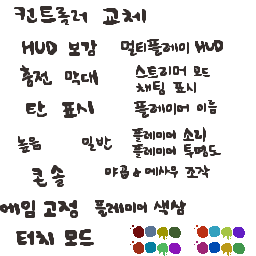 컨트롤러 교체
HUD 보강 멀티플레이 HUD
충전 막대 스트리머 모드
채팀 표시
탄 표시 플레이어 이름
높음 일반 플레이어 소리
플레이어 투명도
콘솔 야곱 & 메사우 조작
에임 고정 플레이어 색삼
터치 모드